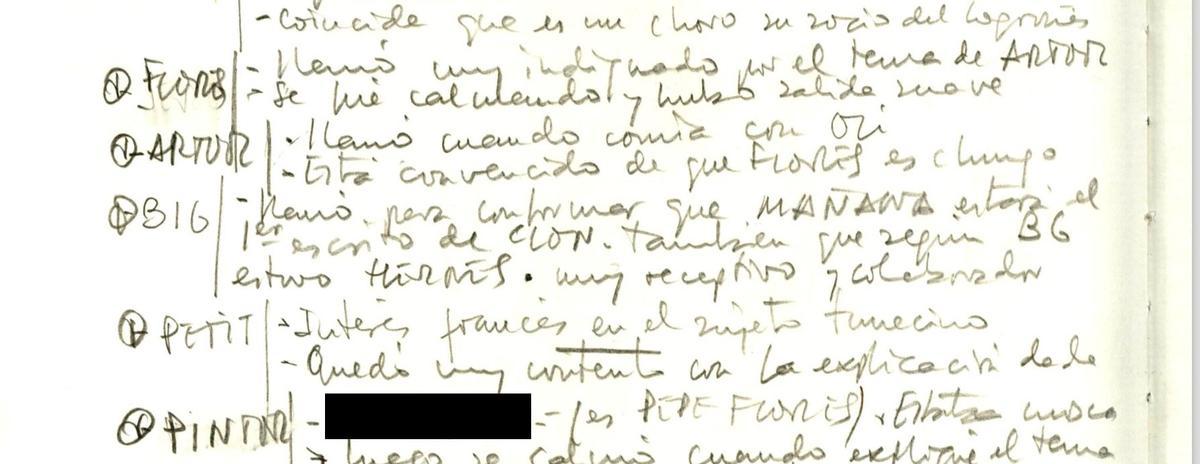 - Coincide que es un choro su socio del Logroñés
FLORES - Llamó muy indignado por el tema de ARTUR
- Se fué calmando y hubo salida suave
ARTUR - Llamó cuando comía con Oli
- Está convencido de que FLORES es chungo
BIG - Llamó para confirmar que MAÑANA estará el
1er escrito de CLON. También que según BG
estuvo HERMES. muy receptivo y colaborador
PETIT - Interés francés en el sujeto tunecino
- Quedó muy contento con la explicación dada
PINTOR - - (es PEPE FLORES). Estaba mosca
luego se calmó cuando expliqué el tema